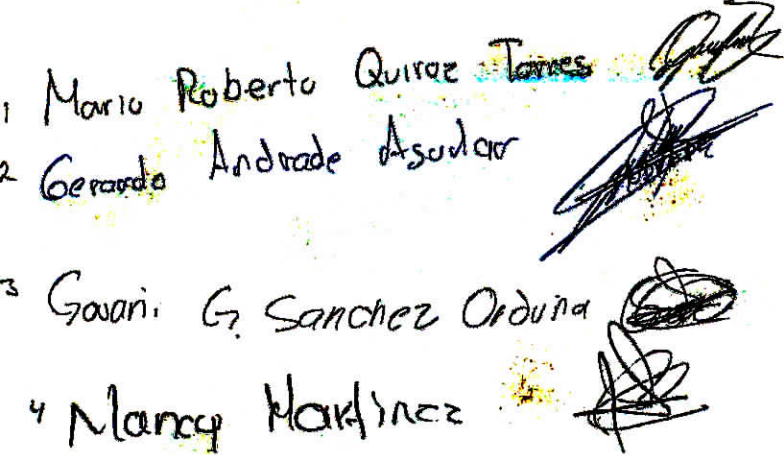 1 Mario Roberto Quiroz Torres
2 Gerardo Andrade Aguilar
3 Govani G. Sanchez Orduña
4 Nancy Martinez